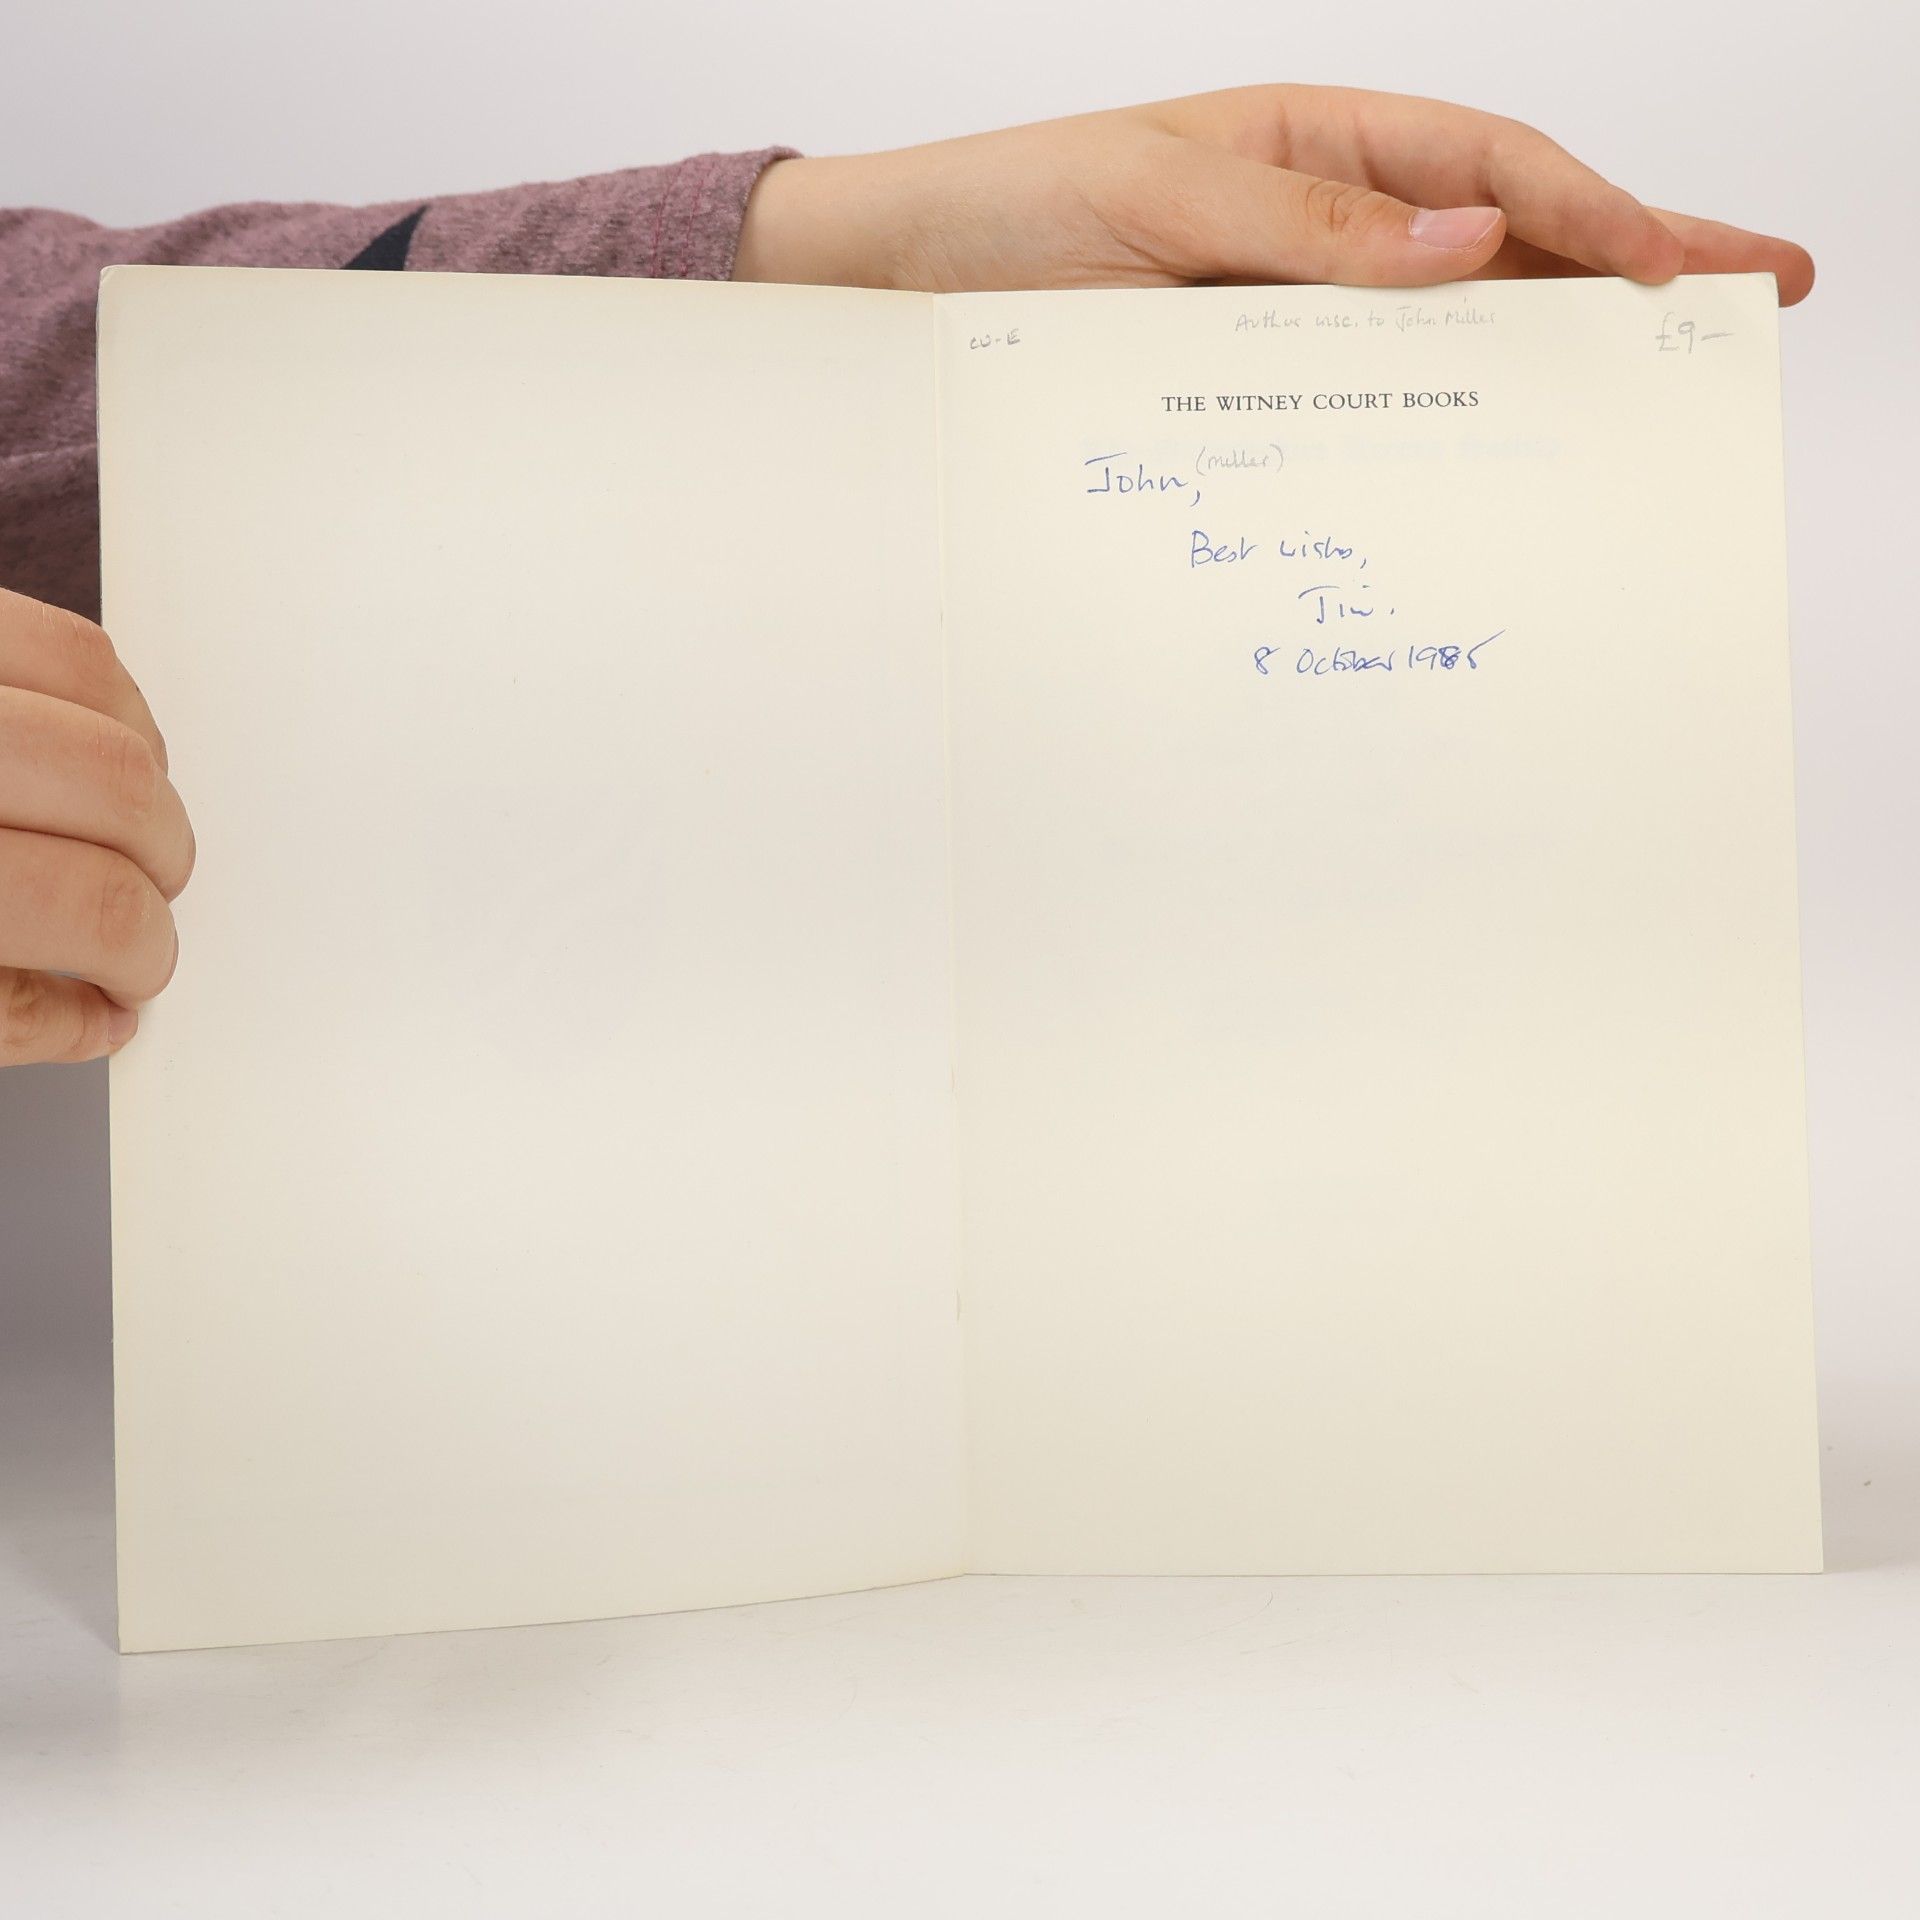 Author insc. to John Miller
CU-E
£9—
THE WITNEY COURT BOOKS
(Miller)
John,
Best wishes,
Jim.
8 October 1985